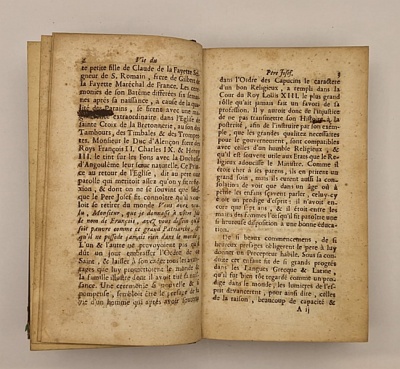 2 Vie du
te petite fille de Claude de la Fayette Sei-
gneur de S. Romain, frere de Gilbert de
la Fayette Maréchal de France. Les cere-
monies de son Batême differées six semai-
nes aprés sa naissance, a cause de la qua-
lité des Parains, se firent avec une ma-
extraordinaire dans l'Eglise de
sainte Croix de la Bretonnerie, au son des
Tambours, des Timbales & des Trompet-
tes. Monsieur le Duc d'Alençon frere des
Roys François II. Charles IX. & Henry
III. le tint sur les Fons avec la Duchesse
d'Angoulême leur sœur naturelle. Ce Prin-
ce au retour de l'Eglise, dit au pere une
parole qui meritoit assez qu'on y fit refle-
xion, & dont on ne se souvint que lors-
que le Pere Josef fit connoître qu'il vou-
loit se retirer du monde
de
soit pauvre comme ce grand Patriarche,
qu'il ne possede jamais rien dans le monde.
L'un & l'autre ne prevoyoient pas qu'il
dût un jour embrasser l'Ordre de ce
Saint, & laisser à son cadet tous les avan-
tages que luy promettoient le
la famille illustre dont il
Une ceremonie si nouvelle & si
pompeuse, sembloit être le presage de la
vie d'un homme qui aprés avoir soutenu
Pere Josef. 3
dans l'Ordre des Capucins le caractere
d'un bon Religieux, a rempli dans la
Cour du Roy Louis XIII. le plus grand
rôle qu'ait jamais fait un favori de sa
profession. Il y auroit donc de l'injustice
de ne pas transmettre son Histoire à la
posterité, afin de l'instruire par son exem-
ple, que les grandes qualitez necessaires
pour le gouvernement, sont compatibles
avec celles d'un humble Religieux, &
qu'il est souvent utile aux Etats que le Re-
ligieux adoucisse le Ministre. Comme il
étoit cher à ses parens, ils en prirent un
grand soin, mais ils eurent aussi la con-
solation de voir que dans un âge où à
peine les enfans sçavent parler, celuy-cy
étoit un prodige d'esprit: il n'avoit en-
core que six ans, & il étoit entre les
mains des femmes lorsqu'il fit paroître une
si heureuse disposition à une bonne éduca-
tion.
De si beaux commencemens, de si
heureux presages obligerent le pere à luy
donner un Precepteur habile. Sous sa con-
duite cet enfant fit de si grands progrés
dans les Langues Grecque & Latine,
qu'il fut bien-tôt regardé comme un pro-
dige dans le monde; les lumieres de l'es-
prit devancerent, pour ainsi dire, celles
de la raison, beaucoup de capacité &
A ij